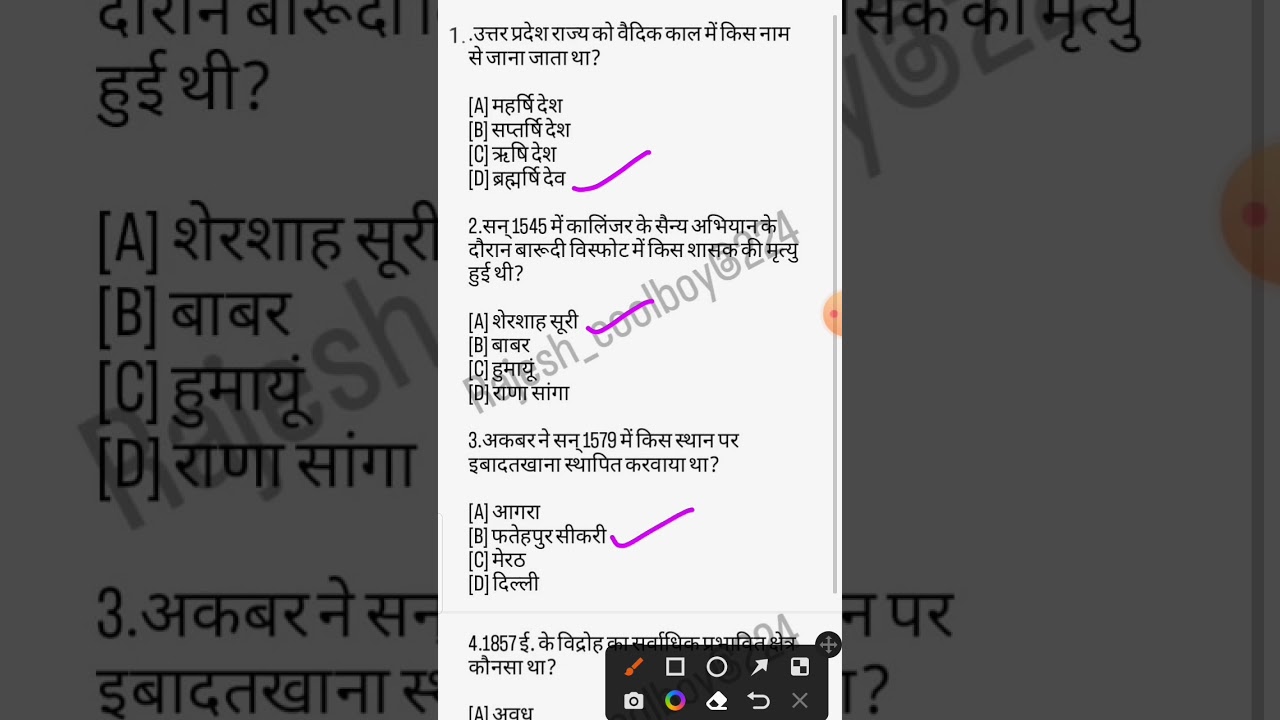 1. .उत्तर प्रदेश राज्य को वैदिक काल में किस नाम
से जाना जाता था?
[A] महर्षि देश
[B] सप्तर्षि देश
[C] ऋषि देश
[D] ब्रह्मर्षि देव
2.सन् 1545 में कालिंजर के सैन्य अभियान के
दौरान बारूदी विस्फोट में किस शासक की मृत्यु
हुई थी?
[A] शेरशाह सूरी
[B] बाबर
[C] हुमायूं
[D] राणा सांगा
Rajesh_coolboy@224
3.अकबर ने सन् 1579 में किस स्थान पर
इबादतखाना स्थापित करवाया था?
[A] आगरा
[B] फतेहपुर सीकरी
[C] मेरठ
[D] दिल्ली
4.1857 ई. के विद्रोह का सर्वाधिक प्रभावित क्षेत्र
कौनसा था?
[A] अवध
हुई थी?
[A] शेरशाह सूरी
[B] बाबर
[C] हुमायूं
[D] राणा सांगा
3.अकबर ने सन्